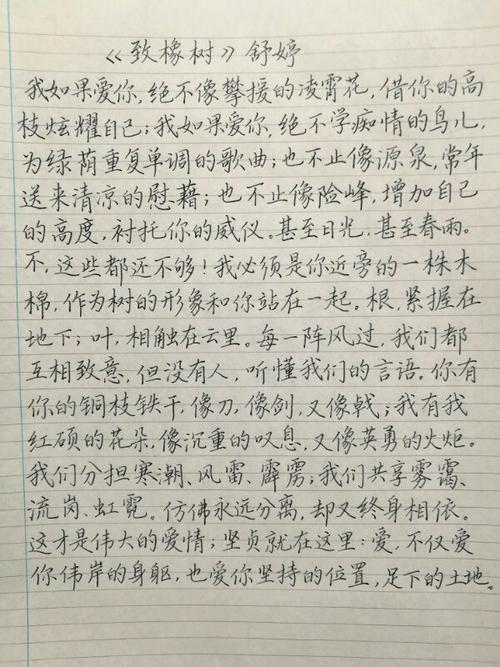 《致橡树》舒婷
我如果爱你,绝不像攀援的凌霄花,借你的高
枝炫耀自己;我如果爱你,绝不学痴情的鸟儿,
为绿荫重复单调的歌曲;也不止像源泉,常年
送来清凉的慰藉;也不止像险峰,增加自己
的高度,衬托你的威仪。甚至日光,甚至春雨。
不,这些都还不够!我必须是你近旁的一株木
棉,作为树的形象和你站在一起。根,紧握在
地下;叶,相触在云里。每一阵风过,我们都
互相致意,但没有人,听懂我们的言语。你有
你的铜枝铁干,像刀,像剑,又像戟;我有我
红硕的花朵,像沉重的叹息,又像英勇的火炬。
我们分担寒潮、风雷、霹雳;我们共享雾霭、
流岚、虹霓。仿佛永远分离,却又终身相依。
这才是伟大的爱情;坚贞就在这里:爱,不仅爱
你伟岸的身躯,也爱你坚持的位置,足下的土地。